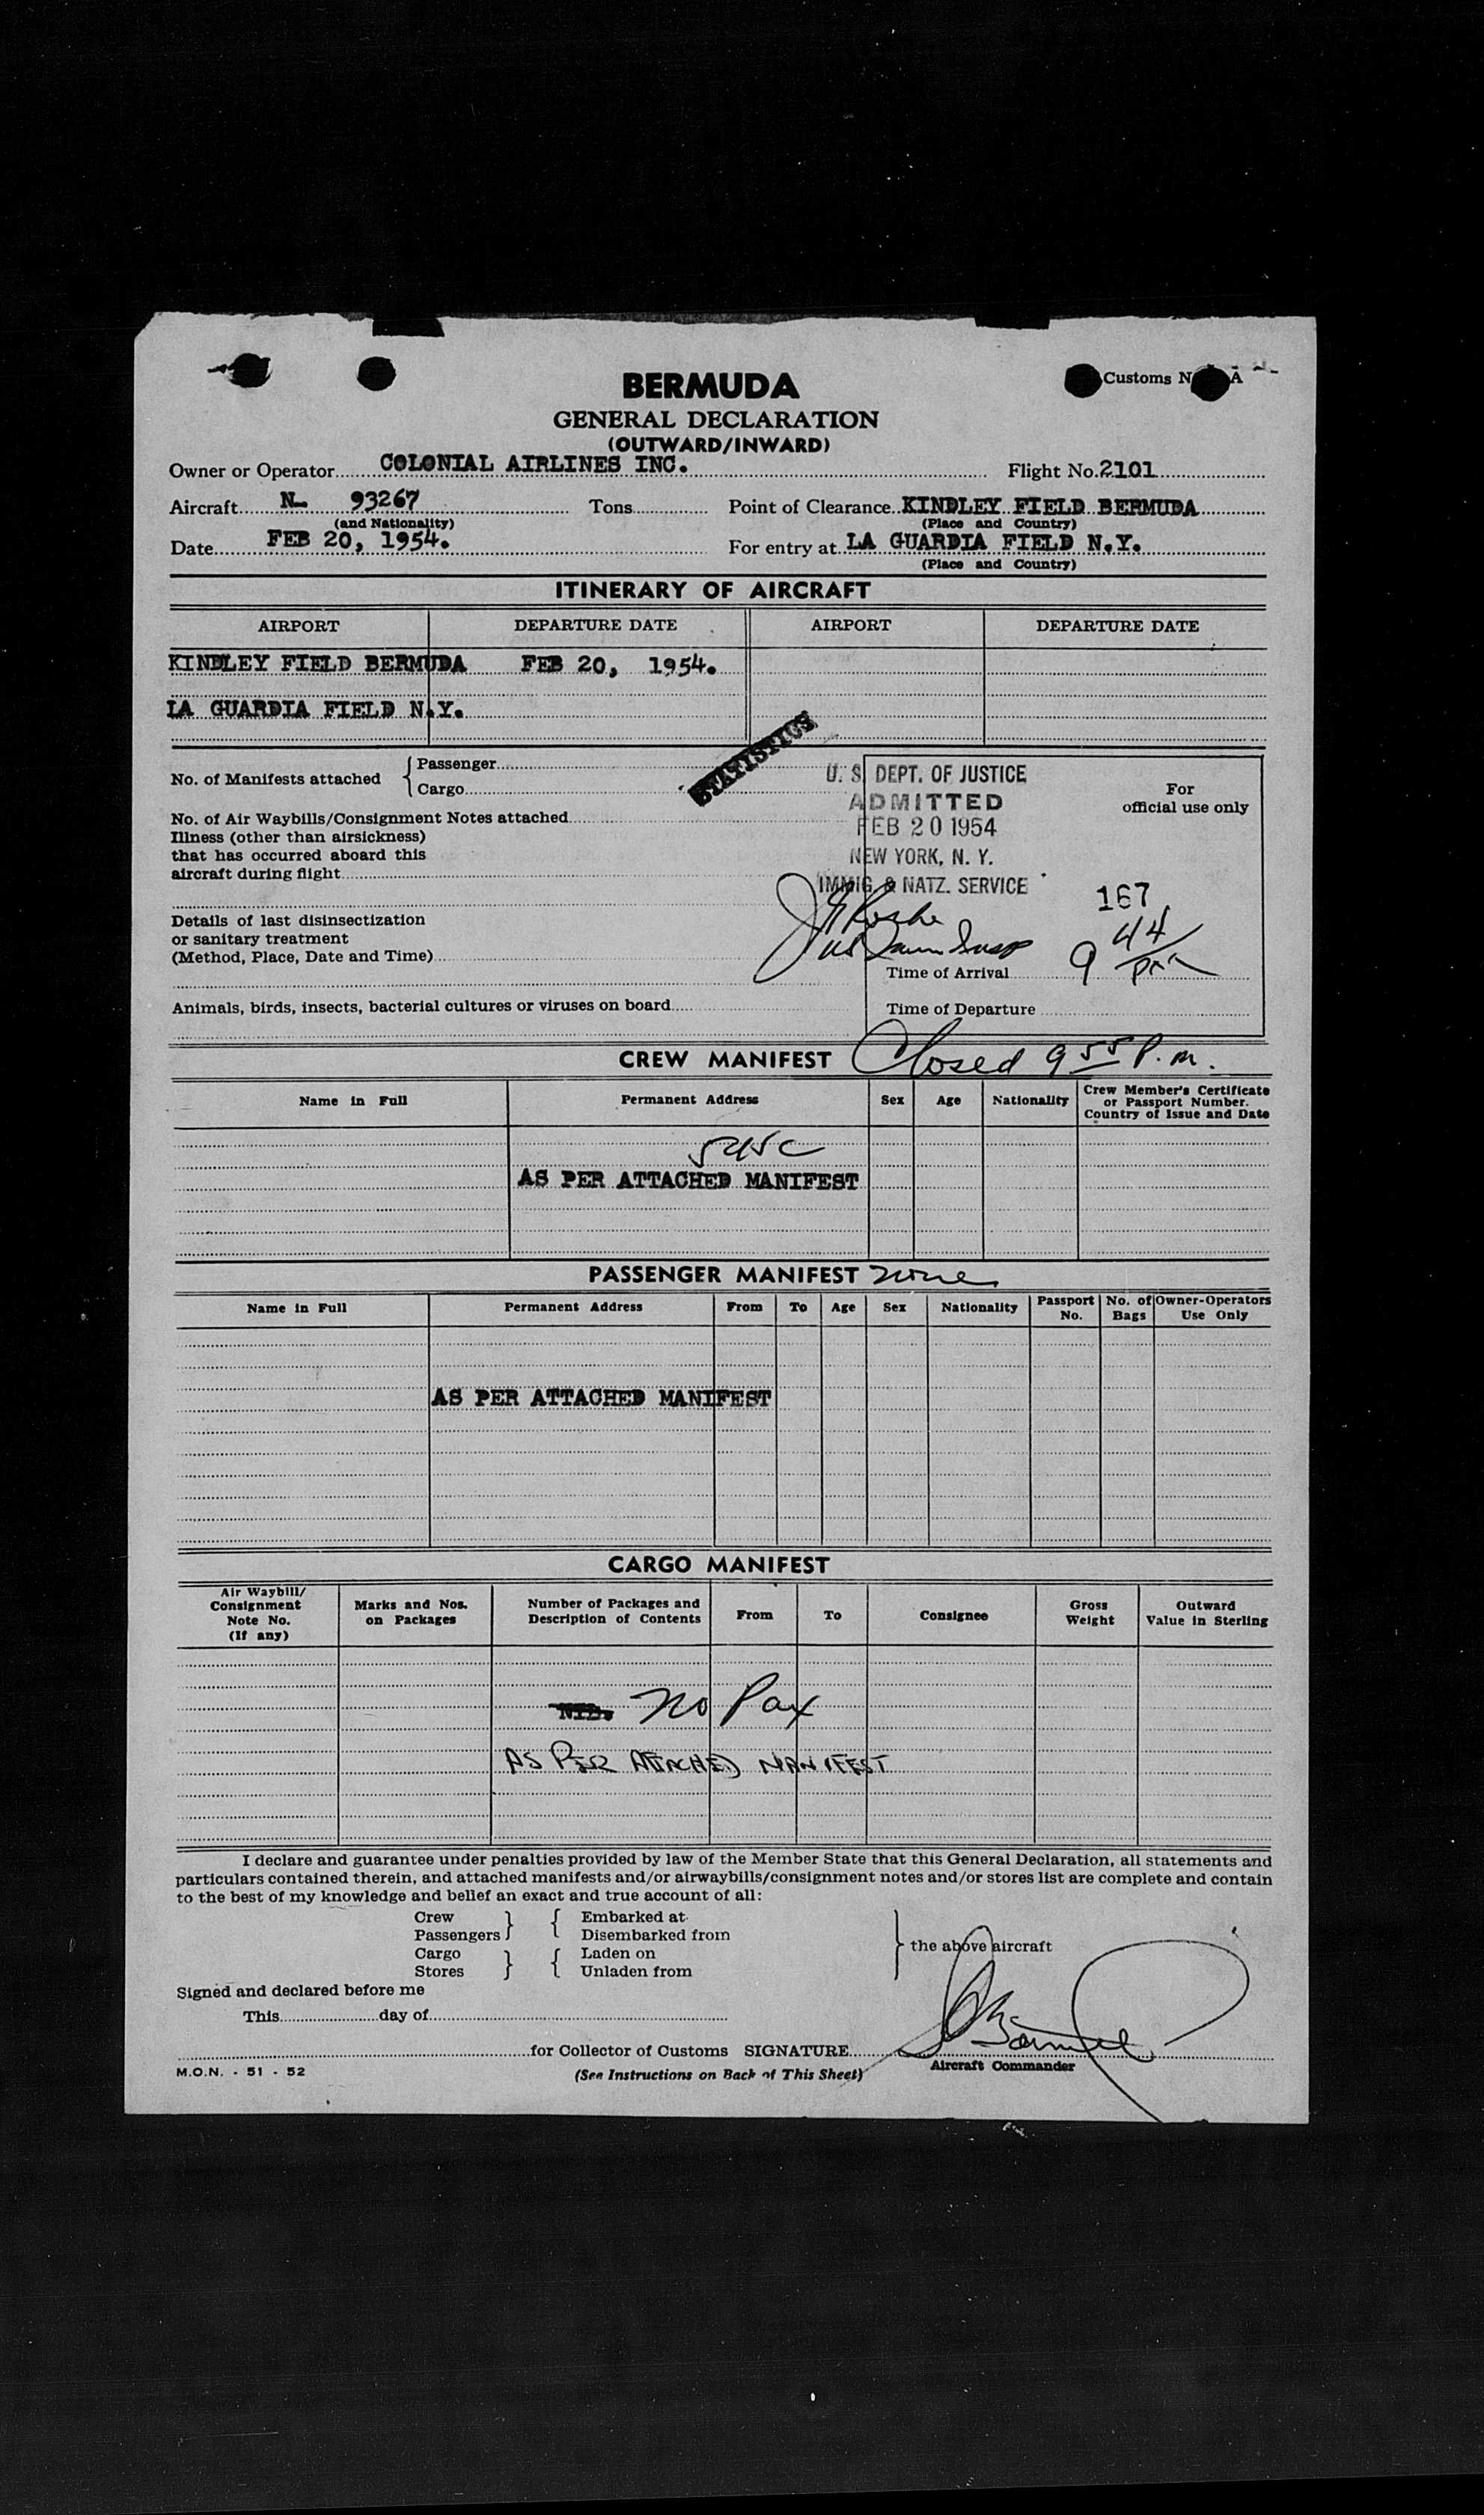 Customs N A
BERMUDA
GENERAL DECLARATION
(OUTWARD/INWARD)
Owner or Operator COLONIAL AIRLINES INC. Flight No. 2101
Aircraft N- 93267 Tons Point of Clearance KINDLEY FIELD BERMUDA
(and Nationality) (Place and Country)
Date FEB 20, 1954. For entry at LA GUARDIA FIELD N.Y.
(Place and Country)
ITINERARY OF AIRCRAFT
AIRPORT DEPARTURE DATE AIRPORT DEPARTURE DATE
KINDLEY FIELD BERMUDA FEB 20, 1954.
LA GUARDIA FIELD N.Y.
STATISTICS
No. of Manifests attached { Passenger
Cargo
U. S. DEPT. OF JUSTICE
ADMITTED
FEB 20 1954
NEW YORK, N. Y.
IMMIG. & NATZ. SERVICE
For
official use only
No. of Air Waybills/Consignment Notes attached
Illness (other than airsickness)
that has occurred aboard this
aircraft during flight
167
Details of last disinsectization
or sanitary treatment
(Method, Place, Date and Time)
Time of Arrival 9 44 pm
Animals, birds, insects, bacterial cultures or viruses on board
Time of Departure
CREW MANIFEST Closed 9 55 P.m.
Name in Full Permanent Address Sex Age Nationality Crew Member's Certificate
or Passport Number.
Country of Issue and Date
AS PER ATTACHED MANIFEST
PASSENGER MANIFEST none
Name in Full Permanent Address From To Age Sex Nationality Passport No. No. of Bags Owner-Operators Use Only
AS PER ATTACHED MANIFEST
CARGO MANIFEST
Air Waybill/
Consignment
Note No.
(If any)
Marks and Nos.
on Packages
Number of Packages and
Description of Contents
From To Consignee
Gross
Weight
Outward
Value in Sterling
NIL. No Pax
AS PER ATTACHED MANIFEST
I declare and guarantee under penalties provided by law of the Member State that this General Declaration, all statements and
particulars contained therein, and attached manifests and/or airwaybills/consignment notes and/or stores list are complete and contain
to the best of my knowledge and belief an exact and true account of all:
Crew } { Embarked at
Passengers Disembarked from
Cargo } { Laden on
Stores Unladen from
} the above aircraft
Signed and declared before me
This day of
for Collector of Customs SIGNATURE
Aircraft Commander
M.O.N. - 51 - 52 (See Instructions on Back of This Sheet)